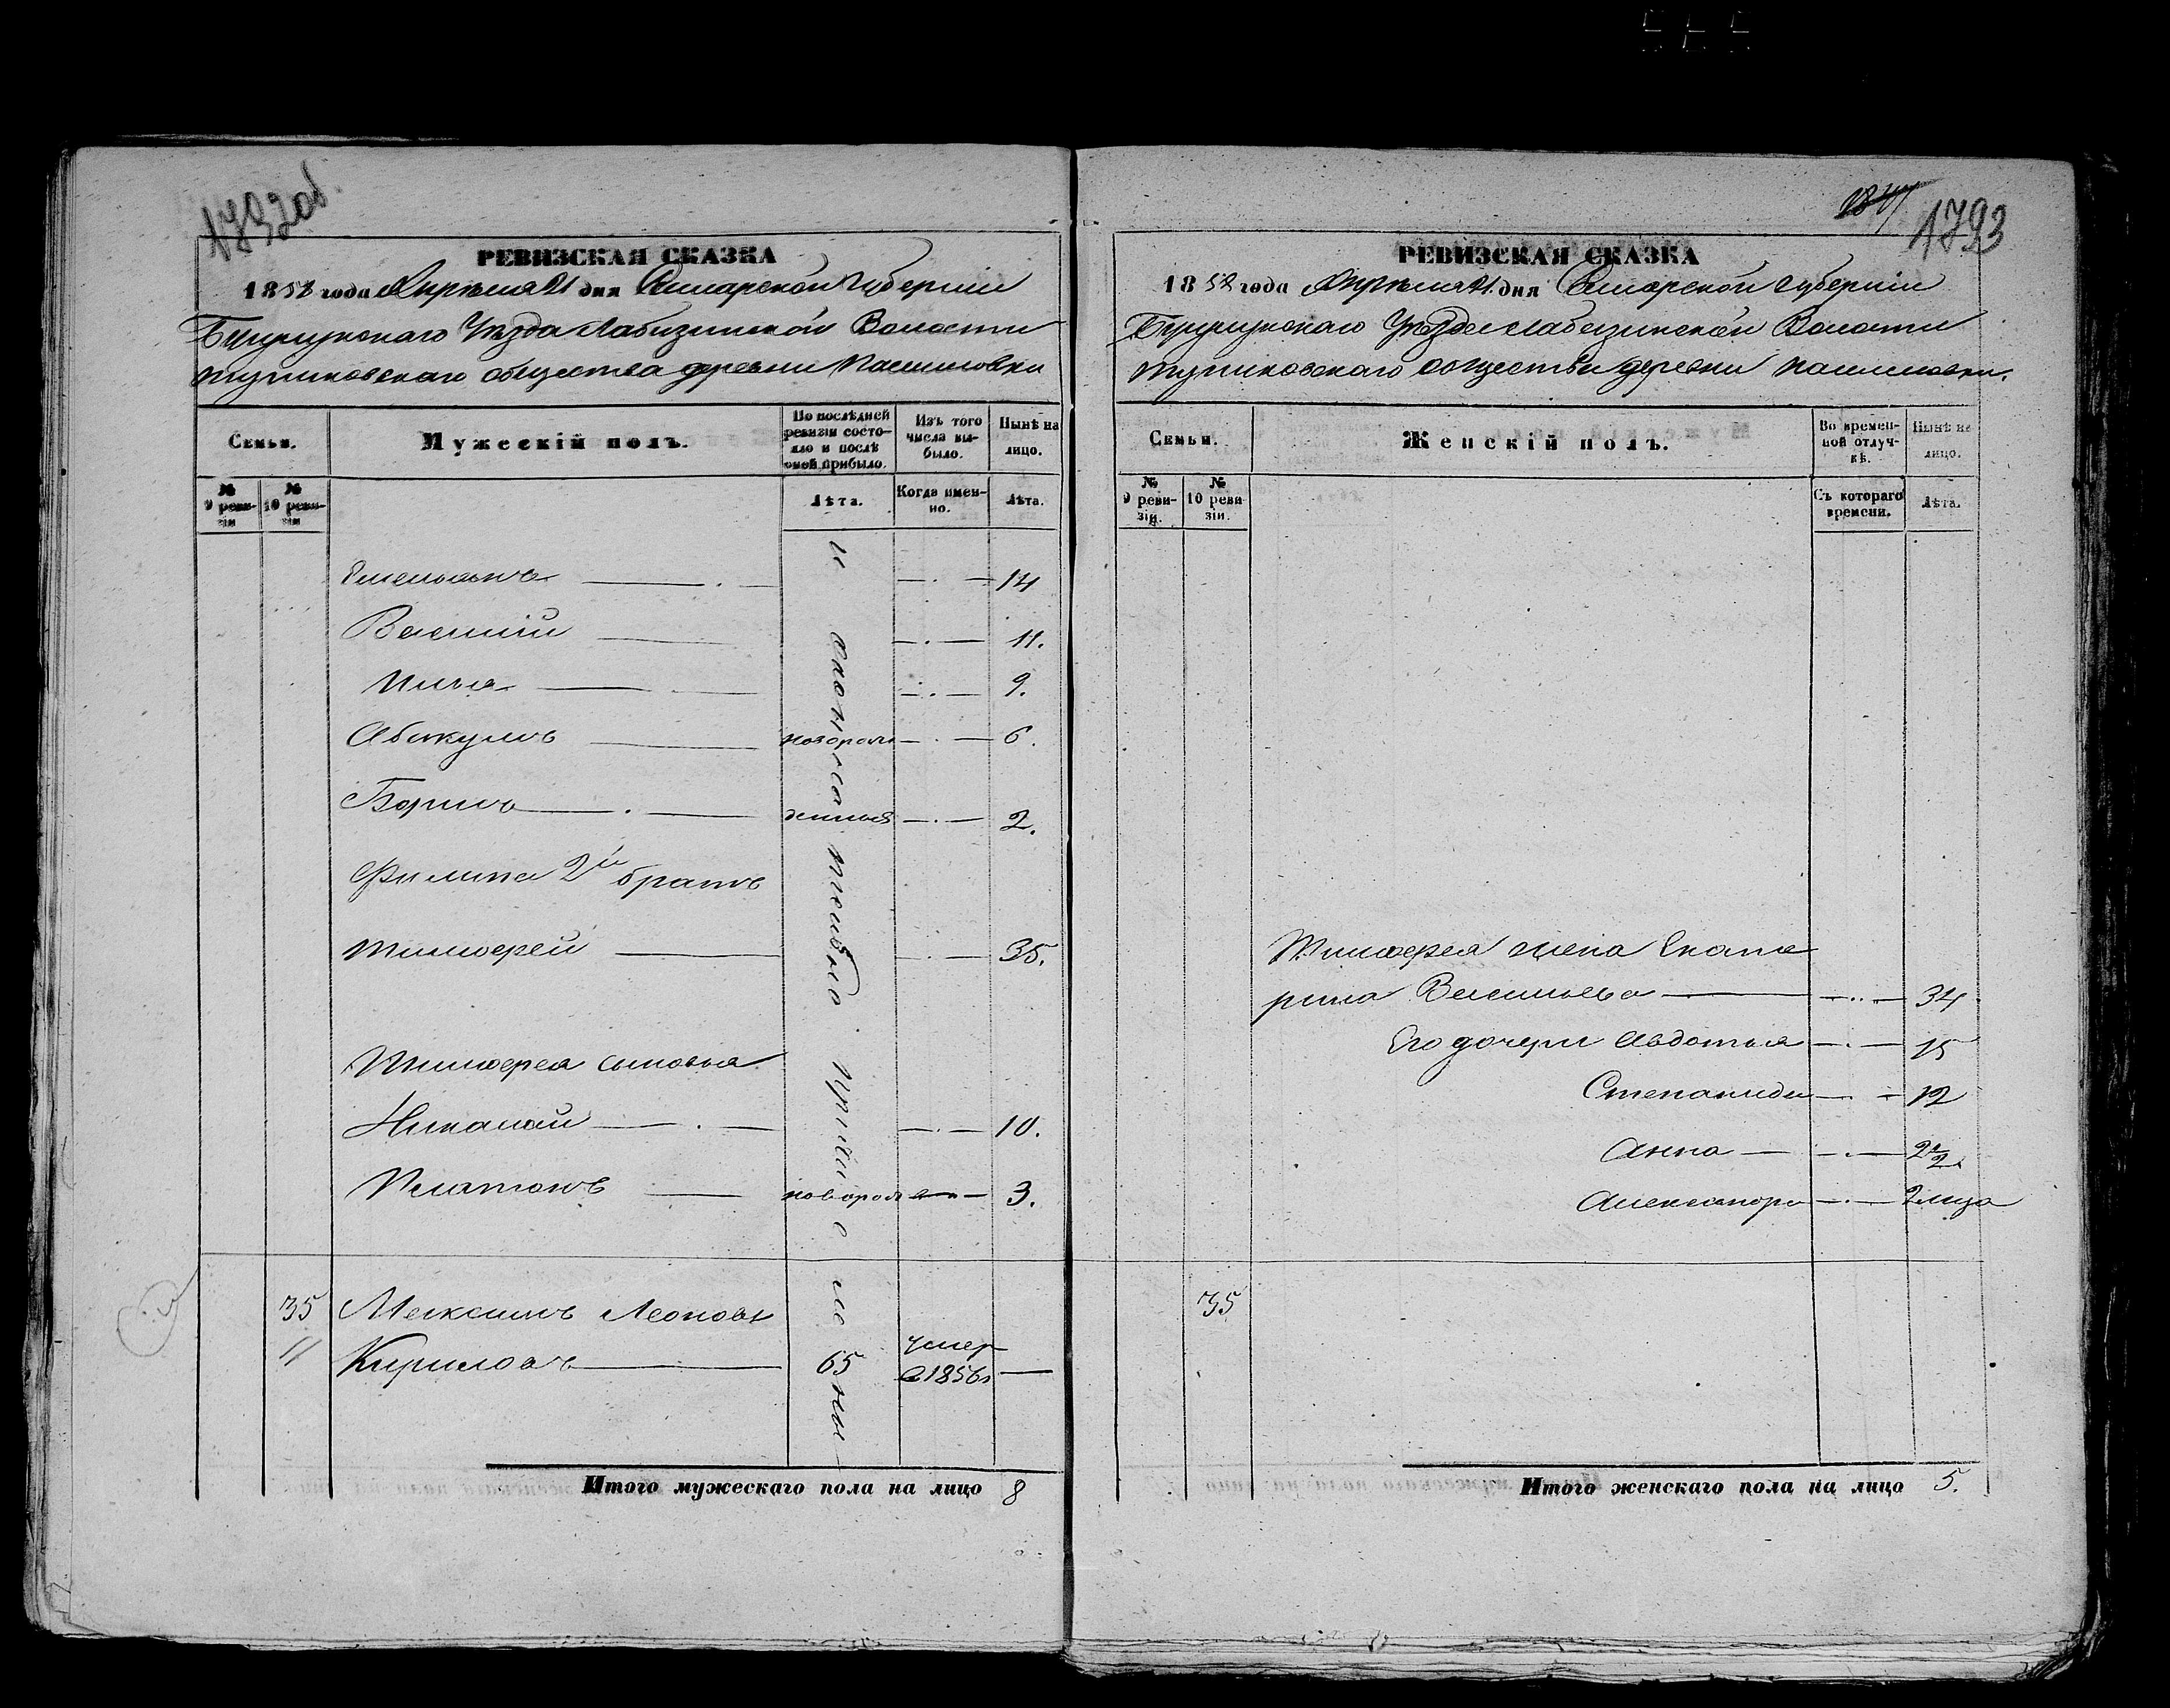 1792об.
РЕВИЗСКАЯ СКАЗКА
1858 года Апреля 21 дня Самарской Губернiи
Бузулукскаго Уѣзда Лабазинской Волости
общества деревни
Семьи.
Мужескiй полъ.
По послѣдней ревизiи состо-
яло и послѣ оной прибыло.
Изъ того числа вы-
было.
Нынѣ на лицо.
№ 9 реви-
зiи
№ 10 реви-
зiи
Лѣта.
Когда имен-
но.
Лѣта.
Емельянъ — 14
Василiй — 11.
Илья — 9.
Абакумъ — новорож — 6.
Борисъ — денныя — 2.
Филипа 2й братъ
Тимофей — 35.
Тимофея сыновья
Никалай — 10.
Платонъ — новорож — 3.
35 Максимъ Леоновъ
Кириловъ — 65 умер в 1856 —
Итого мужескаго пола на лицо 8
1793
РЕВИЗСКАЯ СКАЗКА
1858 года Апреля 21 дня Самарской Губернiи
Бузулукскаго Уѣзда Лабазинской Волости
общества деревни
Семьи.
Женскiй полъ.
Во времен-
ной отлуч-
кѣ.
Нынѣ на лицо.
№ 9 реви-
зiи.
№ 10 реви-
зiи.
Съ котораго времени.
Лѣта.
Тимофея жена Екате
рина Васильева — 34
Его дочери Авдотья — 15
Степанида — 12
Анна — 2 1/2
Александра — 2 м-ца
35
Итого женскаго пола на лицо 5.